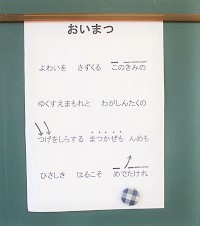 おいまつ
よわいを さずくる このきみの
ゆくすえまもれと わがしんたくの
つげをしらする まつかぜも んめも
ひさしき はるこそ めでたけれ